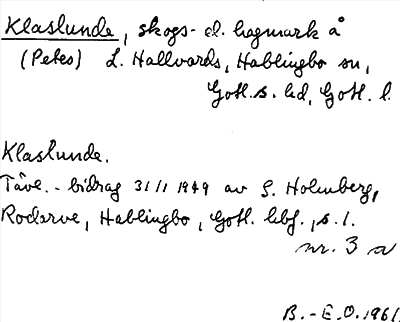 Klaslunde, skogs- el. hagmark å
(Petes) L. Hallvards, Hablingbo sn,
Gotl. s. hd, Gotl. l.
Klaslunde.
Tävl.-bidrag 31/1 1949 av G. Holmberg,
Rodarve, Hablingbo, Gotl. , s. 1.
nr. 3 a
B.-E.O. 1961.